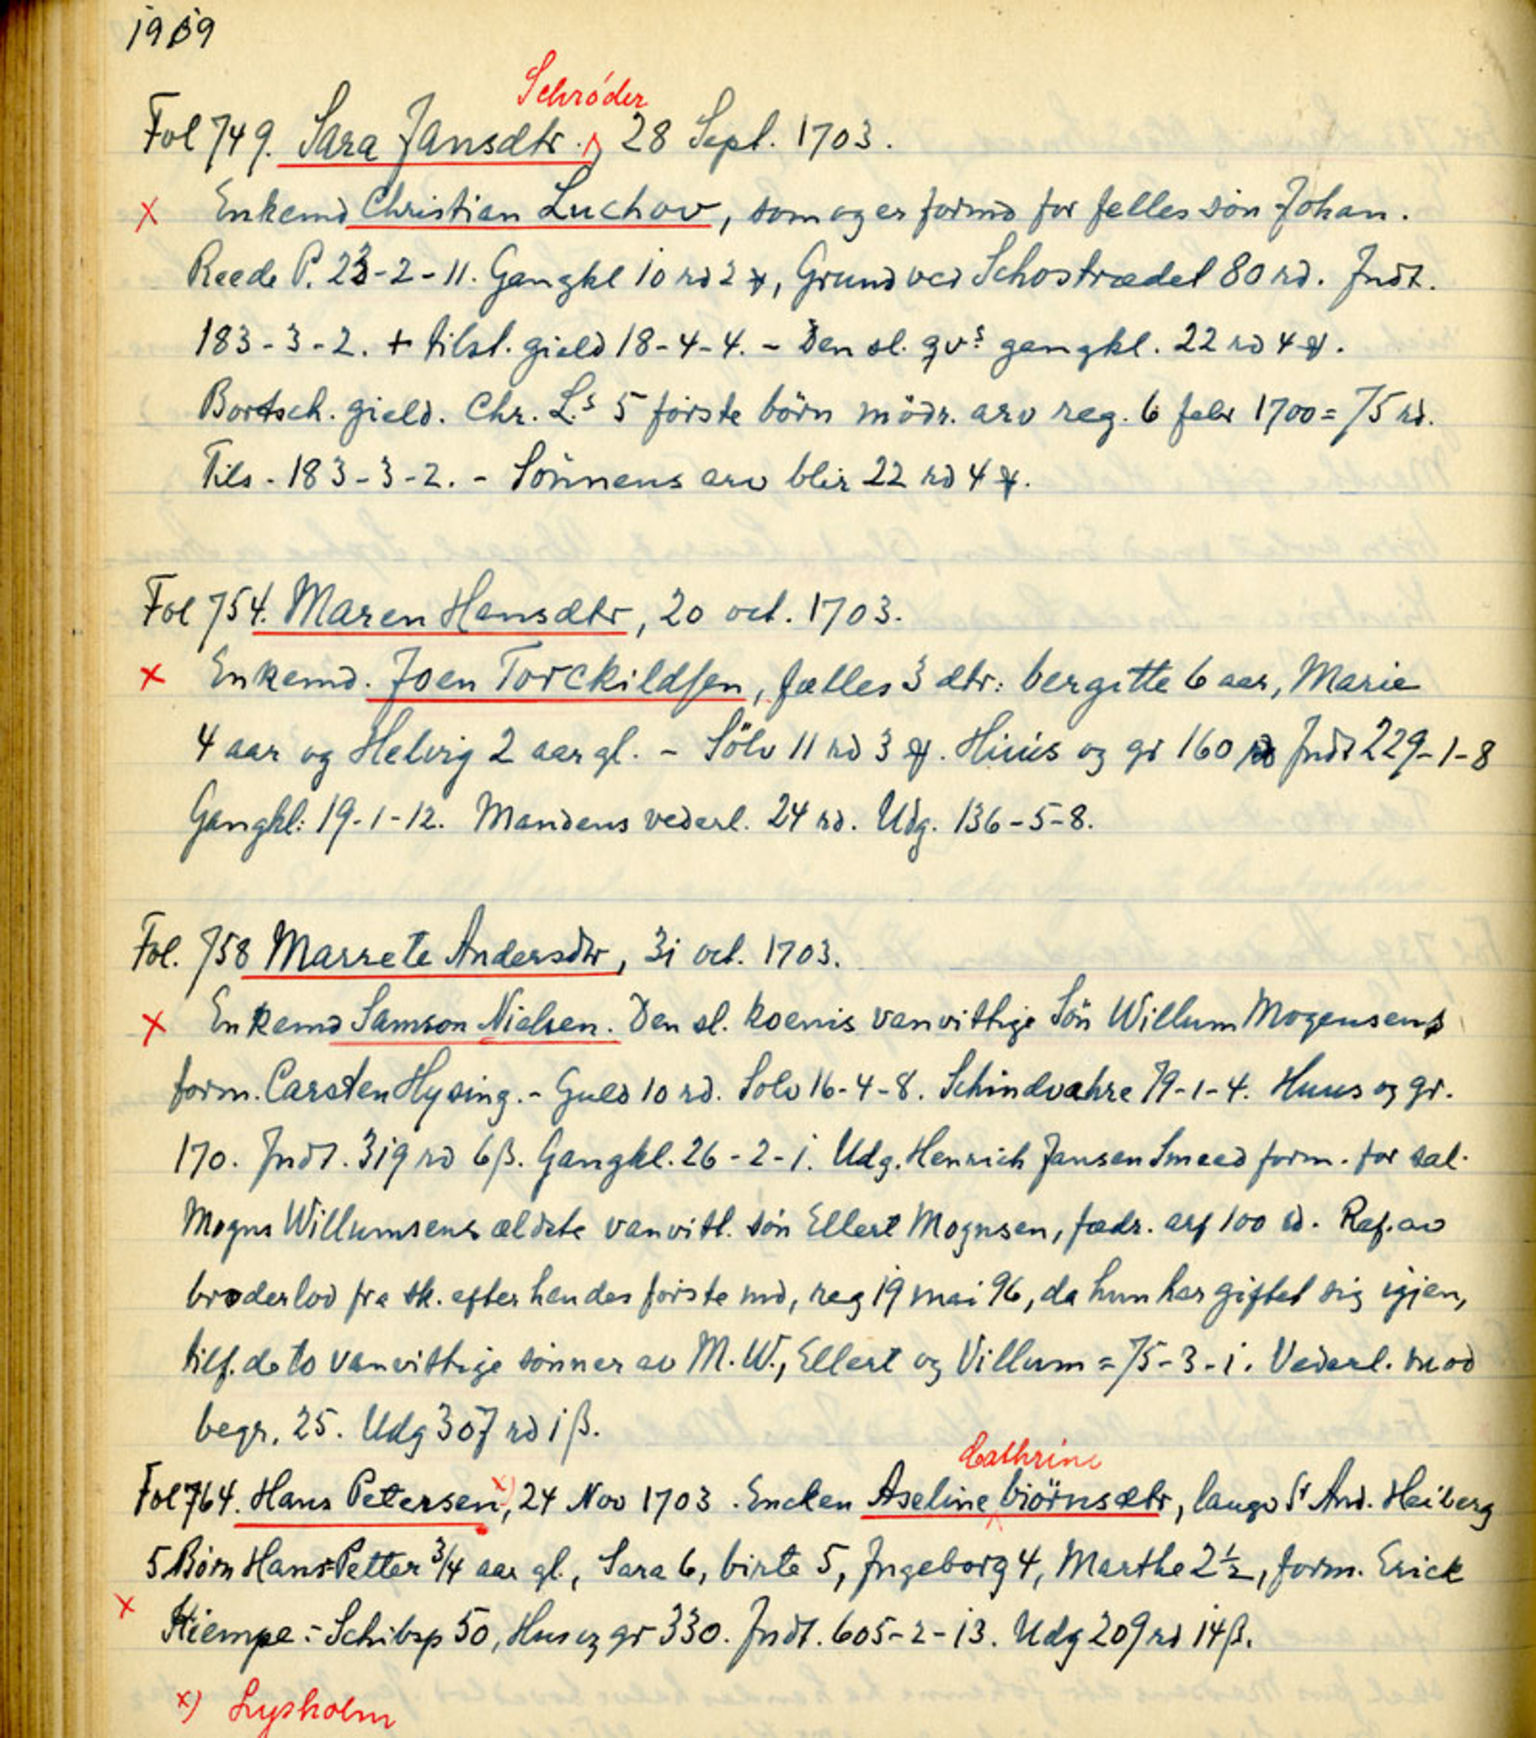 1919
Schröder
Fol 749. Sara Jansdtr. 28 Sept. 1703.
x Enkemd Christian Luchow, som og er formd for felles sön Johan.
Reede P. 23-2-11. Gangkl 10 rd 2 ꝟ, Grund ved Schostrædet 80 rd. Indt.
183-3-2. + tilst. gield 18-4-4. - Den sl. qvs gangkl. 22 rd 4 ꝟ.
Bortsch. gield. Chr. L.s 5 förste börn mödr. arv reg. 6 febr 1700 = 75 rd.
Tils. 183-3-2. - Sönnens arv blir 22 rd 4 ꝟ.
Fol 754. Maren Hansdtr, 20 oct. 1703.
x Enkemd. Joen Torckildsen, fælles 3 dtr: bergitte 6 aar, Marie
4 aar og Helvig 2 aar gl. - Sölv 11 rd 3 ꝟ. Huus og gr 160 rd Indt 229-1-8
Gangkl: 19-1-12. Mandens vederl. 24 rd. Udg. 136-5-8.
Fol. 758 Marrete Andersdtr, 31 oct. 1703.
x Enkemd Samson Nielsen. Den sl. koenis vanvittige Sön Willum Mogensens
form. Carsten Hysing. - Guld 10 rd. Solv 16-4-8. Schindvahre 79-1-4. Huus og gr.
170. Indt. 319 rd 6 β. Gangkl. 26-2-1. Udg. Henrich Jansen Smeed form. for sal.
Mogns Willumsens ældste vanvitt. sön Ellert Mognsen, fædr. arf 100 rd. Raf. av
broderlod fra sk. efter hendes förste md, reg 19 mai 96, da hun har giftet sig igjen,
tilf. de to vanvittige sönner av M. W., Ellert og Villum = 75-3-1. Vederl. mod
begr. 25. Udg 307 rd 1 β.
Cathrine
Fol 764. Hans Petersen x), 24 Nov 1703. Encken Aseline biörnsdtr, laugv Sr And. Heiberg
5 Börn Hans Petter 3/4 aar gl., Sara 6, birte 5, Ingeborg 4, Marthe 2½, form. Erick
x Kiempe. - Schibsp 50, Hus og gr 330. Indt. 605-2-13. Udg 209 rd 14 β.
x) Lysholm